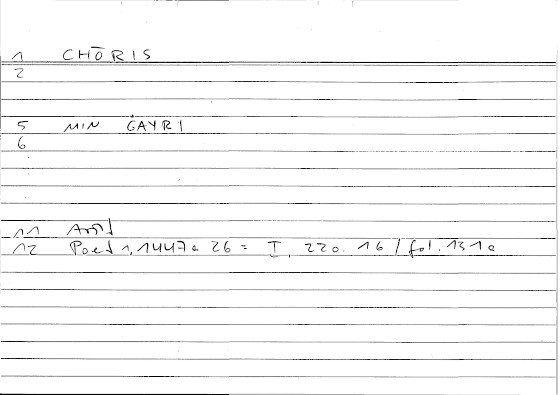 1 CHŌRIS
2
5 MIN ĠAYRI
6
11 Arist
12 Poet 1, 1447a 26 = I, 220. 16 / fol. 131a